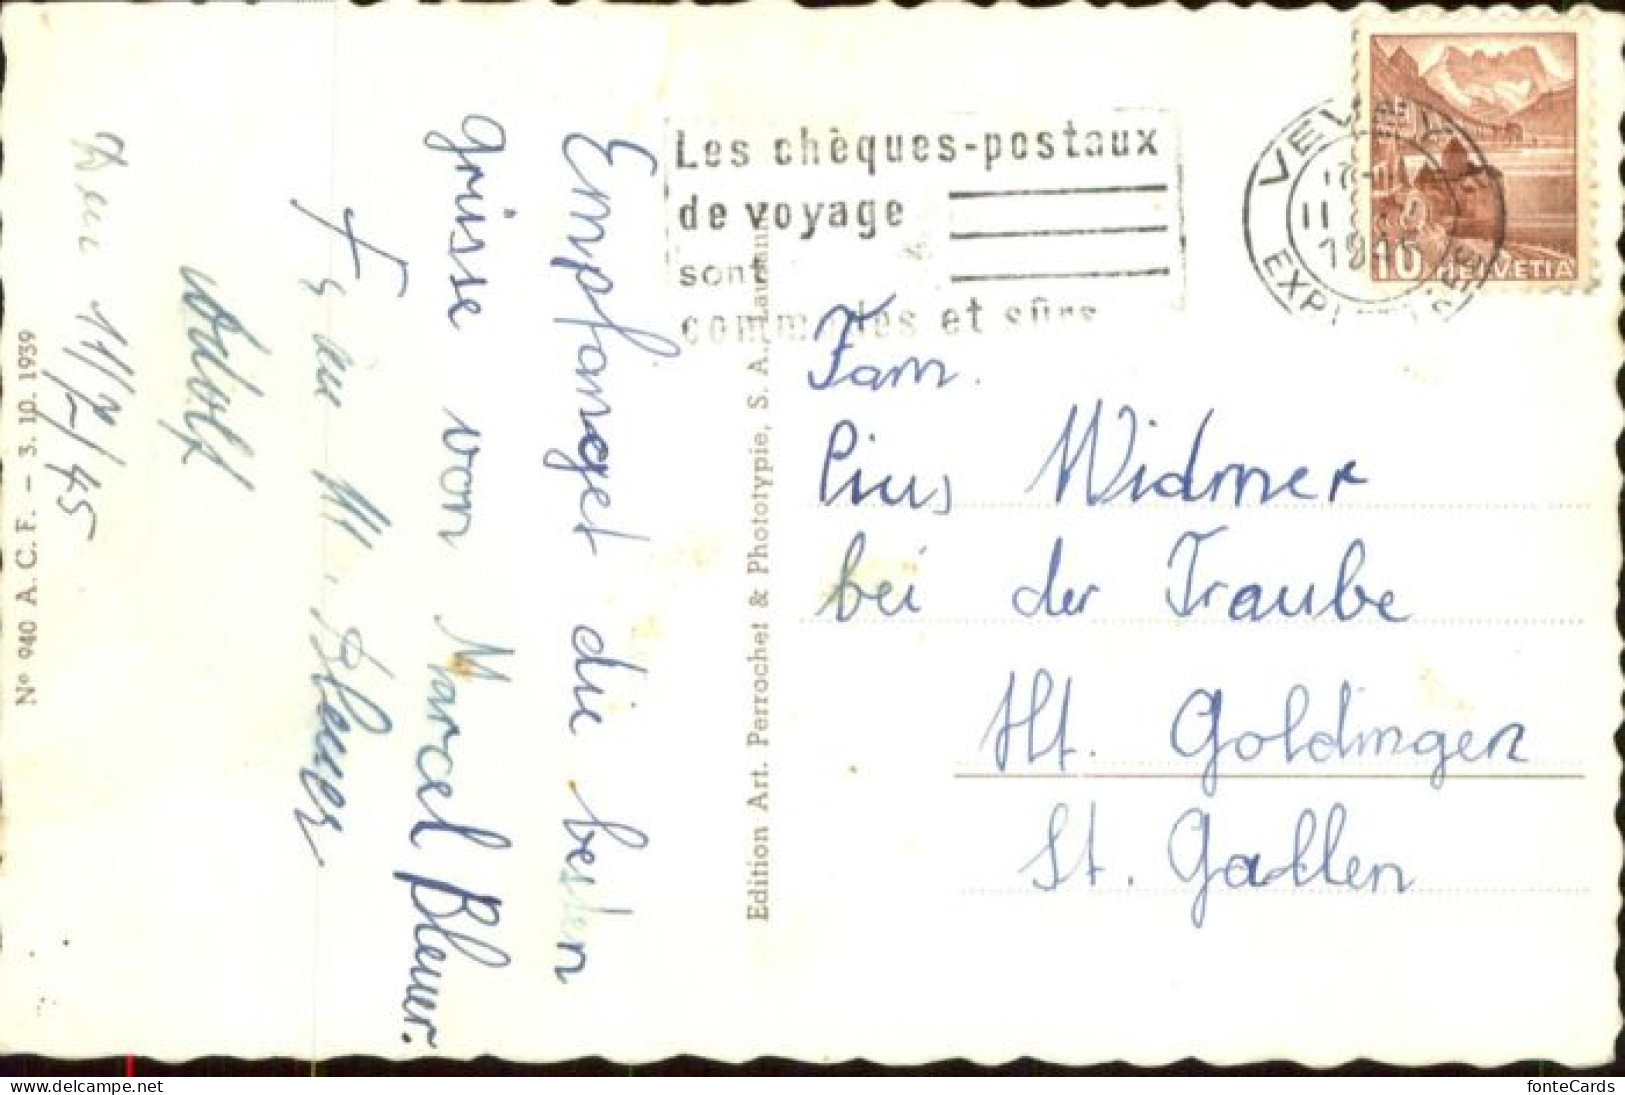 Les chèques-postaux
de voyage
sont
commodes et sûrs
VEVEY
11
1945
EXP
10 HELVETIA
Empfanget die besten
grüsse von Marcel Bleuer.
Den 11/7/45
Nº 940 A. C. F. – 3. 10. 1939
Edition Art. Perrochet & Phototypie, S. A., Lausanne
Fam.
Pius Widmer
bei der Traube
Ht. Goldingen
St. Gallen
www.delcampe.net
fonteCards